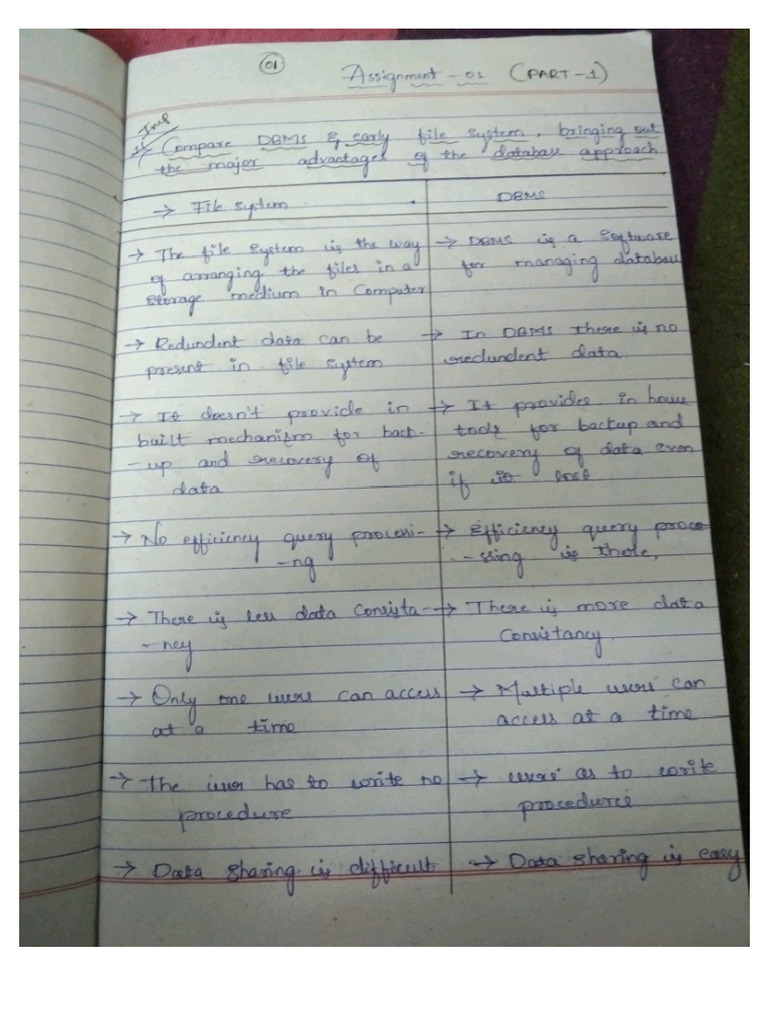 01
Assignment - 01 (PART - 1)
Imp
1) Compare DBMS & early file system, bringing out
the major advantages of the database approach.
→ File system
DBMS
→ The file system is the way
of arranging the files in a
storage medium in Computer
→ DBMS is a software
for managing database
→ Redundent data can be
present in file system
→ In DBMS there is no
redundent data
→ It doesn't provide in
built mechanism for back-
-up and recovery of
data
→ It provides in house
tools for backup and
recovery of data even
if it lost
→ No efficiency query processi-
-ng
→ Efficiency query proce
-ssing is there,
→ There is less data Consista-
-ncy
→ There is more data
Consistancy.
→ Only one users can access
at a time
→ Multiple users can
access at a time
→ The user has to write no
procedure
→ users as to write
procedures
→ Data sharing is difficult
→ Data sharing is easy